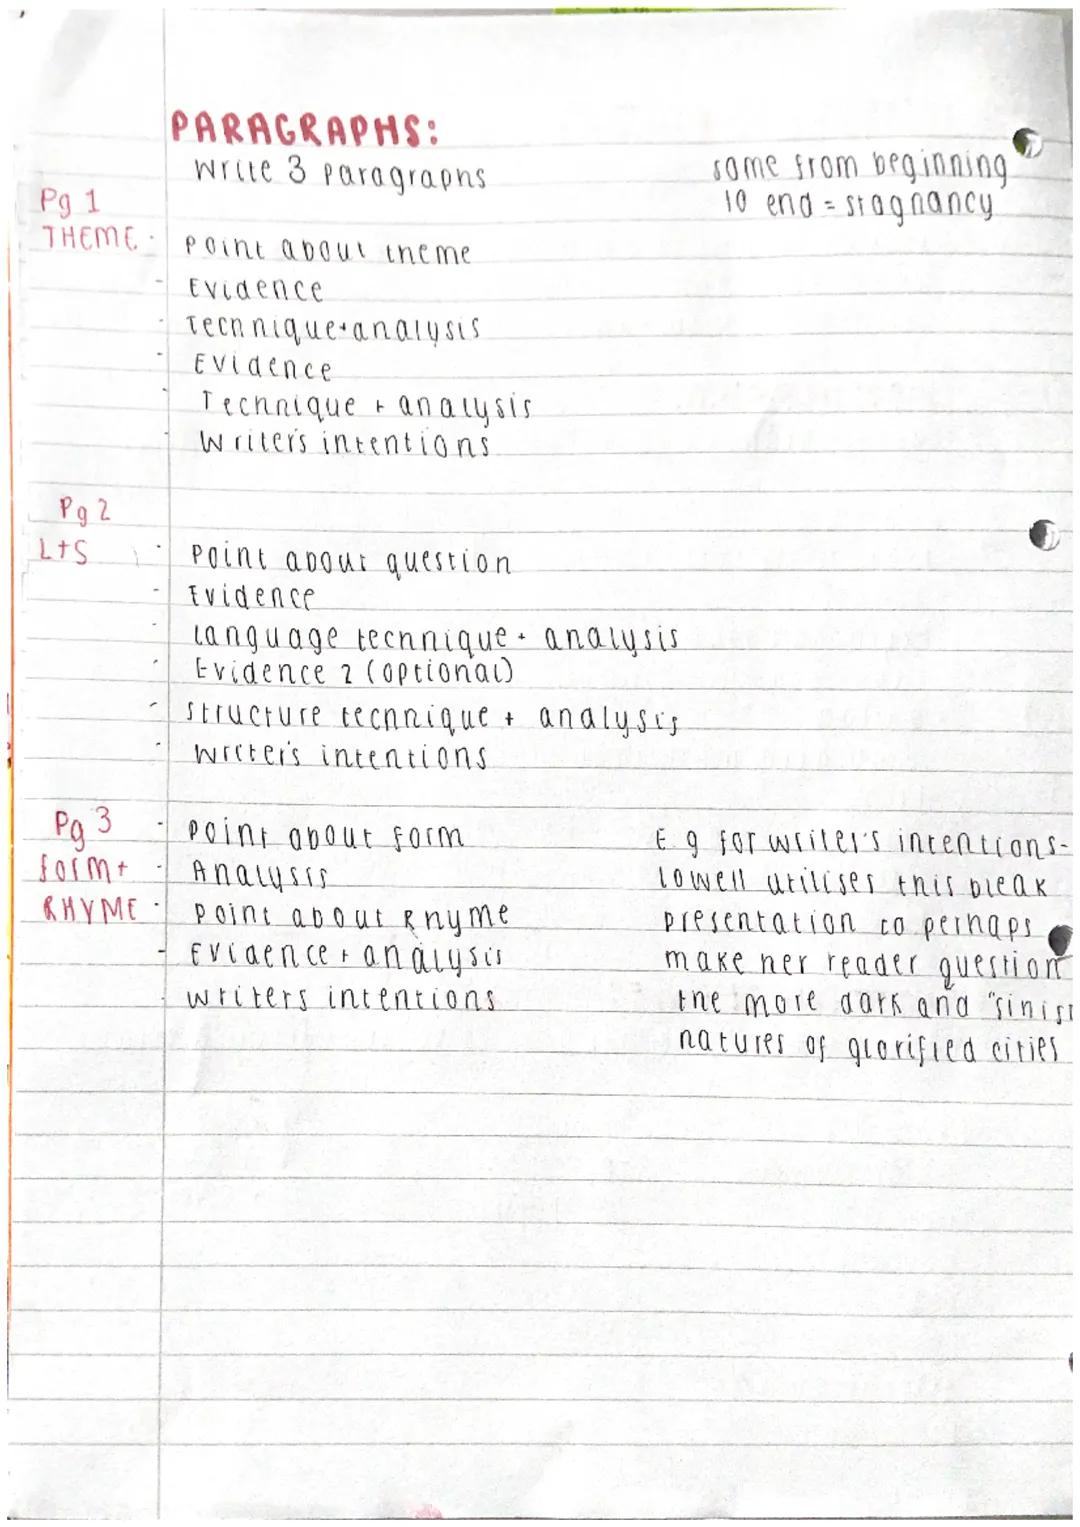 PARAGRAPHS:
Write 3 paragraphs
same from beginning
to end = stagnancy
Pg 1
THEME
- Point about theme
- Evidence
- Technique + analysis
- Evidence
- Technique + analysis
- Writer's intentions
Pg 2
L+S
- Point about question
- Evidence
- Language technique + analysis
- Evidence 2 (optional)
- Structure technique + analysis
- Writer's intentions
Pg 3
form +
RHYME
- Point about form
- Analysis
- Point about Rhyme
- Evidence + analysis
- writers intentions
E.g for writer's intentions-
Lowell utilises this bleak
presentation to perhaps
make her reader question
the more dark and "sinist
natures of glorified cities